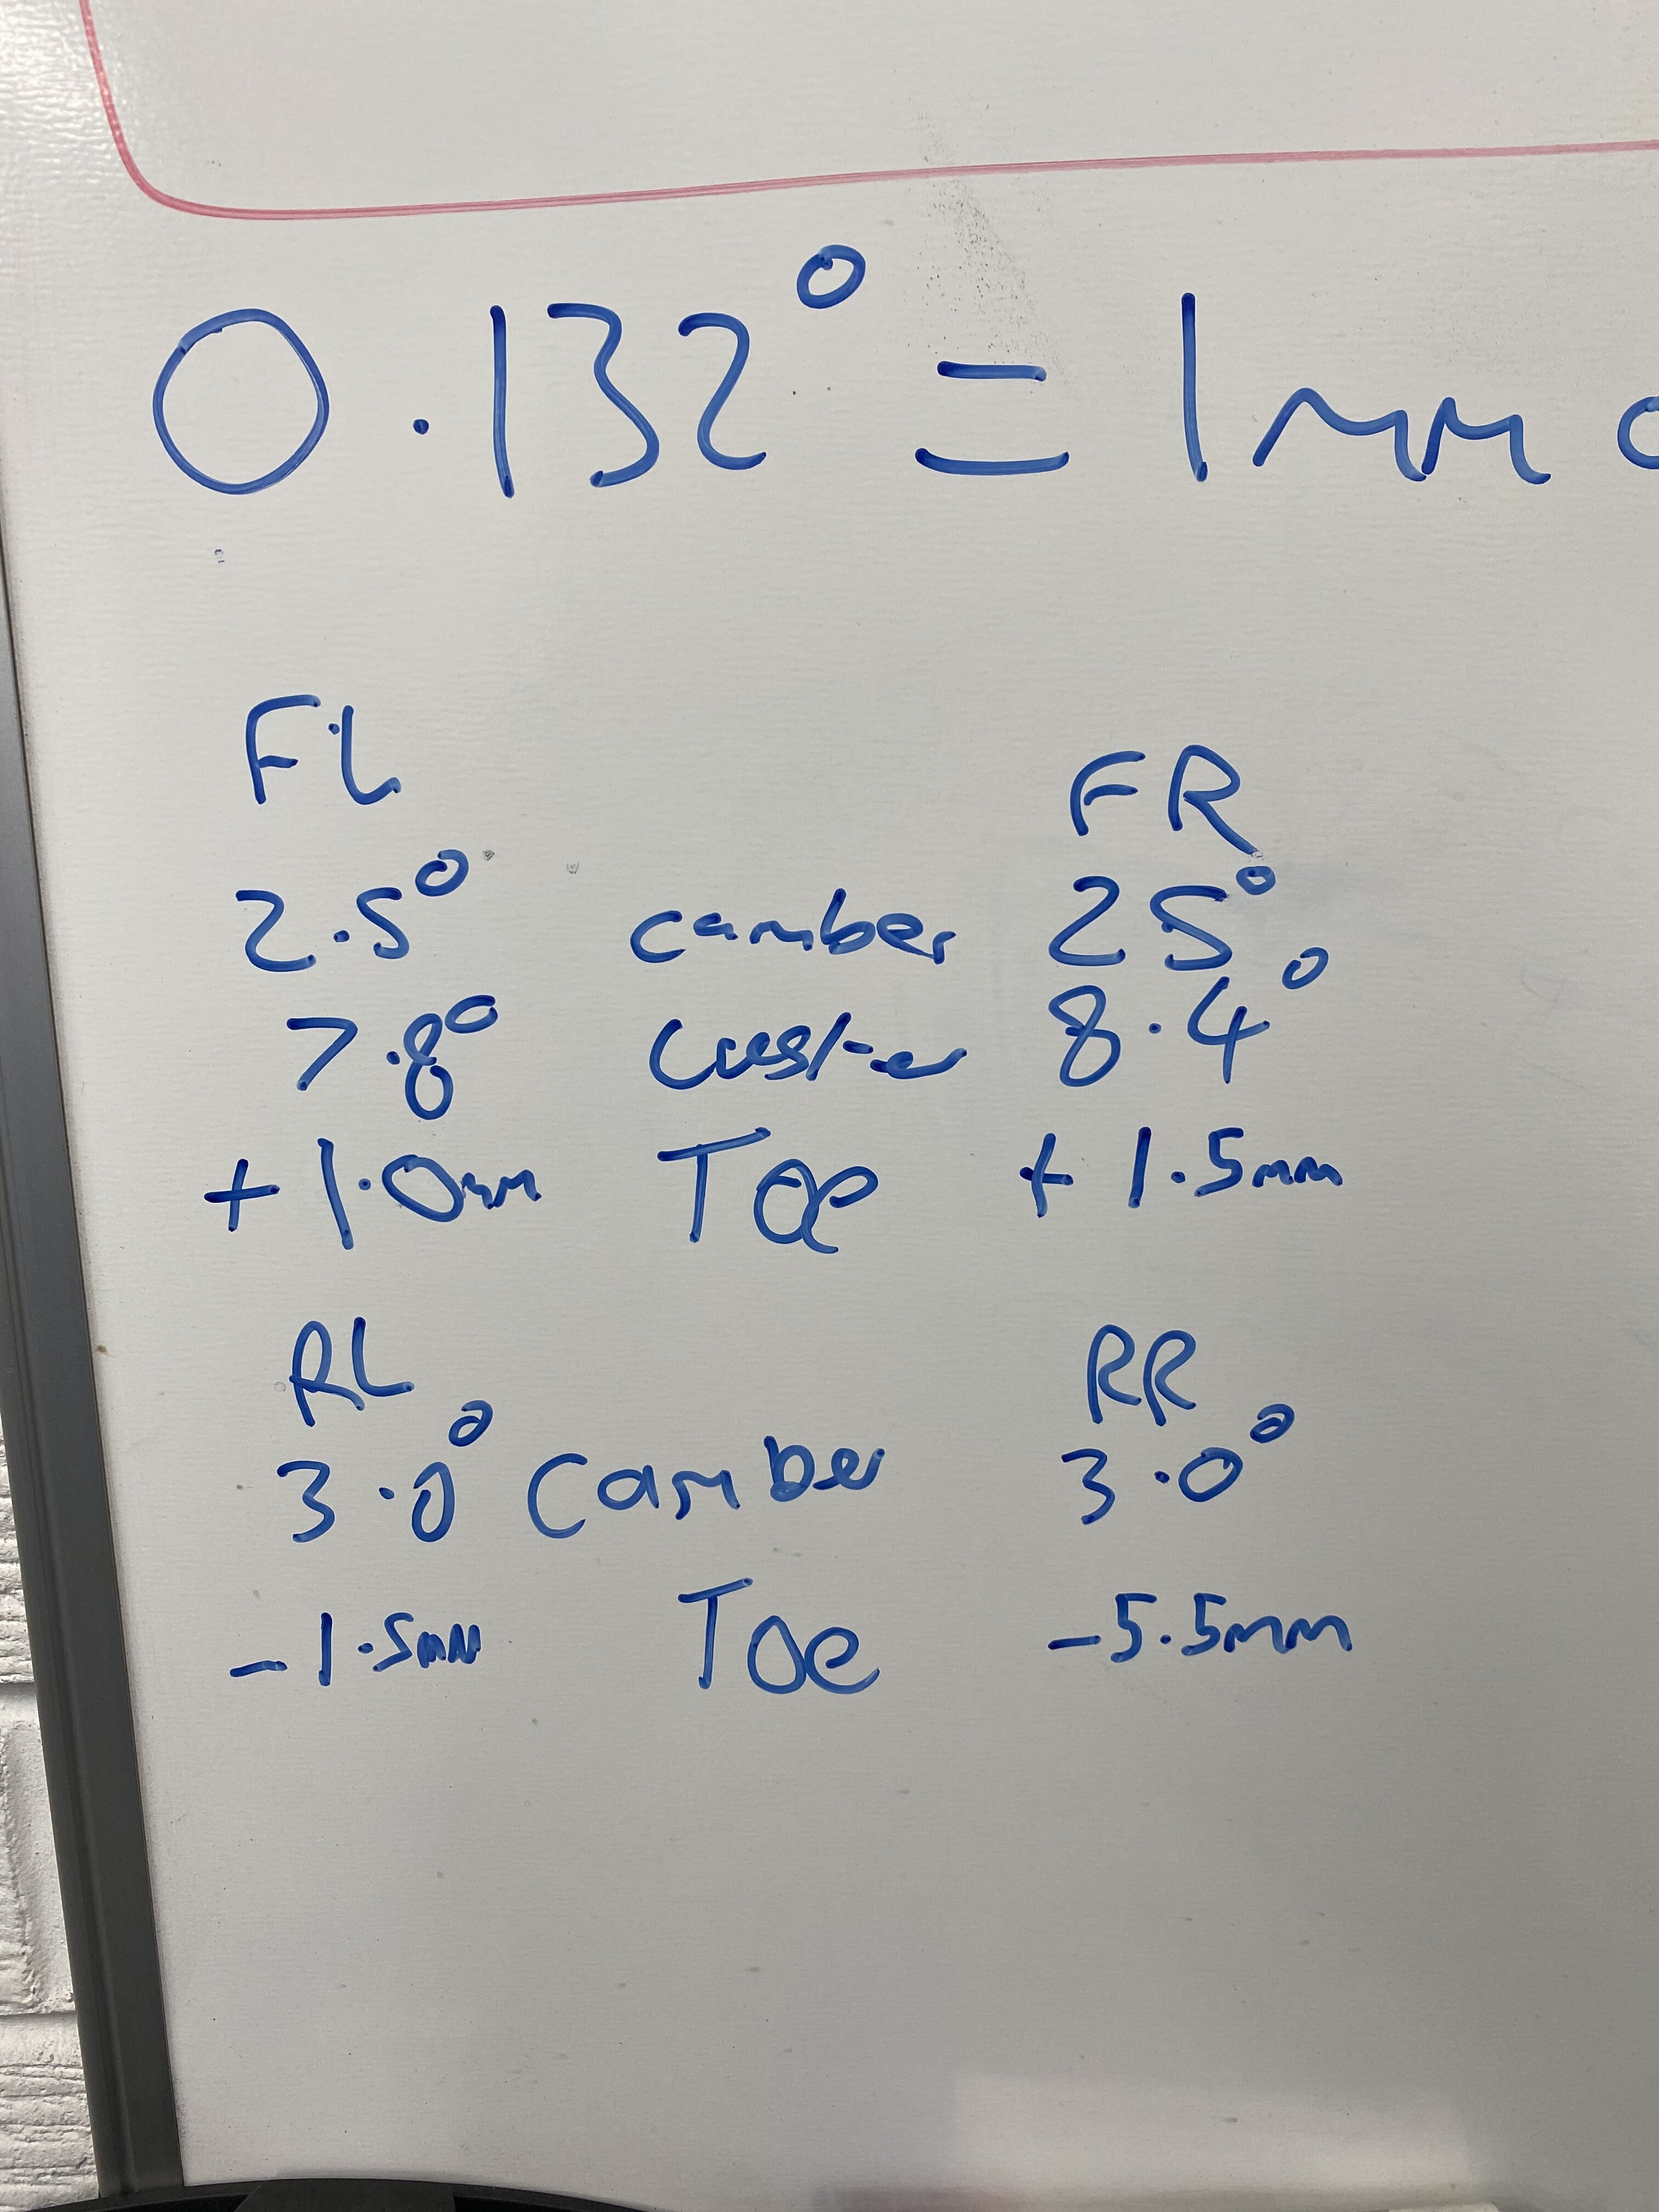 0.132° = 1mm
FL FR
2.5° camber 25°
7.8° caster 8.4°
+1.0mm Toe +1.5mm
RL RR
3.0° Camber 3.0°
-1.5mm Toe -5.5mm